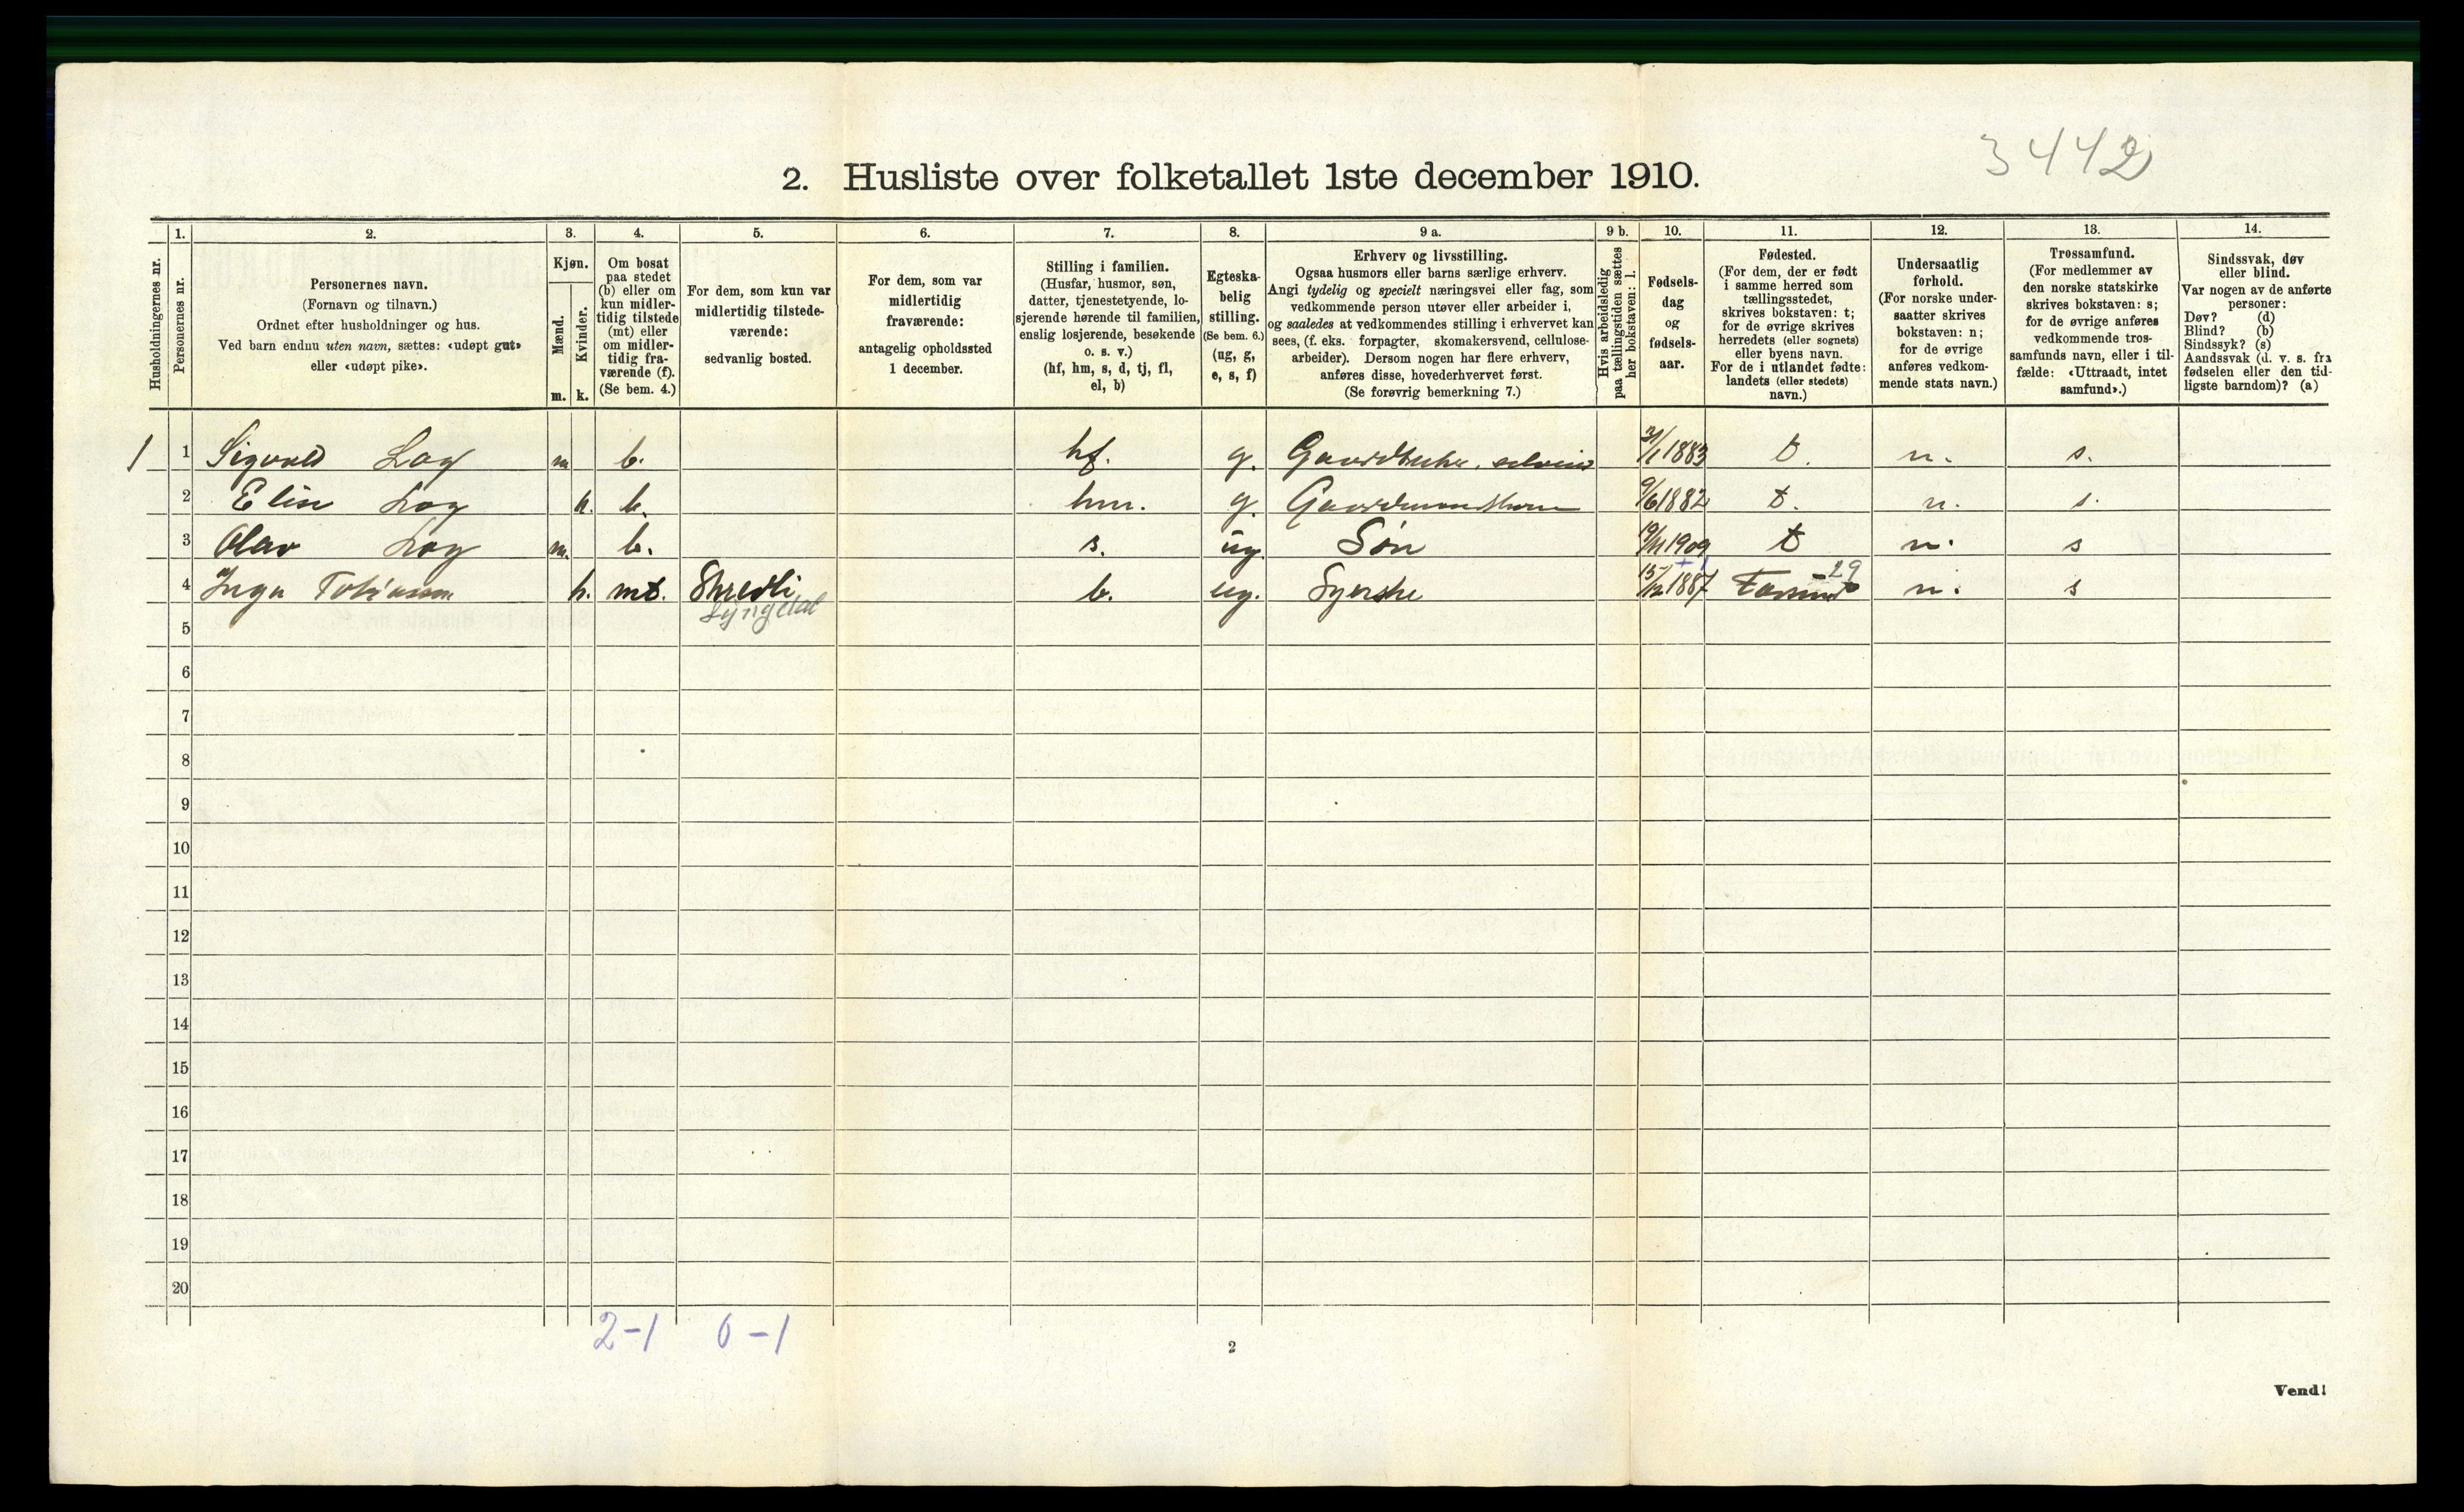 3442
2. Husliste over folketallet 1ste december 1910.
Husholdningernes nr.
1.
Personernes nr.
2.
Personernes navn.
(Fornavn og tilnavn.)
Ordnet efter husholdninger og hus.
Ved barn endnu uten navn, sættes: «udøpt gut»
eller «udøpt pike».
3.
Kjøn.
Mænd.
Kvinder.
m. k.
4.
Om bosat
paa stedet
(b) eller om
kun midler-
tidig tilstede
(mt) eller
om midler-
tidig fra-
værende (f).
(Se bem. 4.)
5.
For dem, som kun var
midlertidig tilstede-
værende:
sedvanlig bosted.
6.
For dem, som var
midlertidig
fraværende:
antagelig opholdssted
1 december.
7.
Stilling i familien.
(Husfar, husmor, søn,
datter, tjenestetyende, lo-
sjerende hørende til familien,
enslig losjerende, besøkende
o. s. v.)
(hf, hm, s, d, tj, fl,
el, b)
8.
Egteska-
belig
stilling.
(Se bem. 6.)
(ug, g,
e, s, f)
9 a.
Erhverv og livsstilling.
Ogsaa husmors eller barns særlige erhverv.
Angi tydelig og specielt næringsvei eller fag, som
vedkommende person utøver eller arbeider i,
og saaledes at vedkommendes stilling i erhvervet kan
sees, (f. eks. forpagter, skomakersvend, cellulose-
arbeider). Dersom nogen har flere erhverv,
anføres disse, hovederhvervet først.
(Se forøvrig bemerkning 7.)
9 b.
Hvis arbeidsledig
paa tællingstiden sættes
her bokstaven: l.
10.
Fødsels-
dag
og
fødsels-
aar.
11.
Fødested.
(For dem, der er født
i samme herred som
tællingsstedet,
skrives bokstaven: t;
for de øvrige skrives
herredets (eller sognets)
eller byens navn.
For de i utlandet fødte:
landets (eller stedets)
navn.)
12.
Undersaatlig
forhold.
(For norske under-
saatter skrives
bokstaven: n;
for de øvrige
anføres vedkom-
mende stats navn.)
13.
Trossamfund.
(For medlemmer av
den norske statskirke
skrives bokstaven: s;
for de øvrige anføres
vedkommende tros-
samfunds navn, eller i til-
fælde: «Uttraadt, intet
samfund».)
14.
Sindssvak, døv
eller blind.
Var nogen av de anførte
personer:
Døv? (d)
Blind? (b)
Sindssyk? (s)
Aandssvak (d. v. s. fra
fødselen eller den tid-
ligste barndom)? (a)
1 1 Sigvald Log m b. hf. g. 1883 t. n. s.
2 Elise Log k. b. hm. g. 9/6 1882 t. n. s.
3 Olav Log m. b. s. ug. Søn 1909 t n. s
4 Inga Tobiassen k. mt. b. ug. Syerske 15/12 1887 Farsund 29 n. s
Lyngdal
5
6
7
8
9
10
11
12
13
14
15
16
17
18
19
20
2-1 0-1
2
Vend!